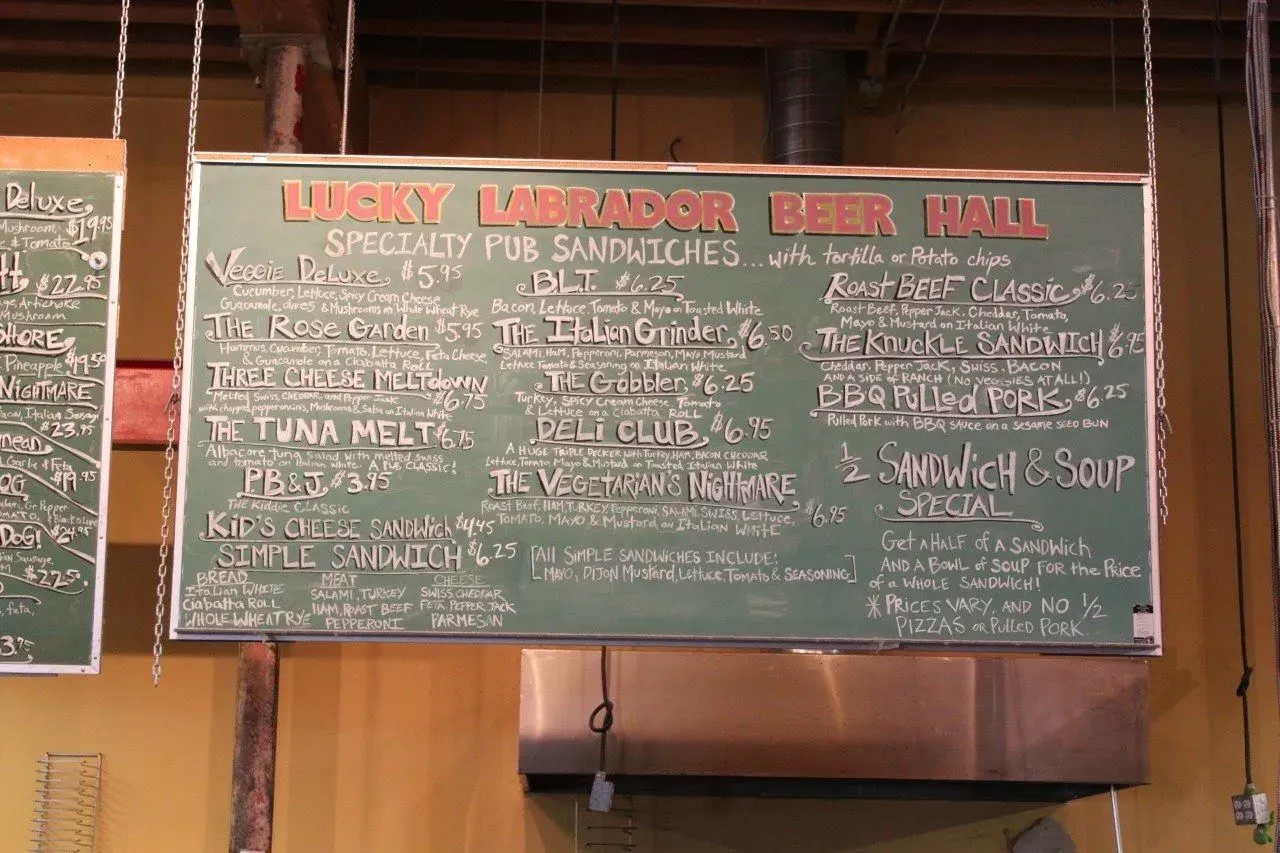 Deluxe
Mushroom, $19.95
& Tomato
$22.95
Artichoke
Mushroom
Pineapple $19.50
Nightmare
Italian Sausage
$23.95
Garlic & Feta
$19.95
Gr. Pepper
$24.95
Dog!
Sausage,
$22.5
feta,
3.95
LUCKY LABRADOR BEER HALL
SPECIALTY PUB SANDWICHES... with tortilla or Potato chips
Veggie DeLuxe $5.95
Cucumber, Lettuce, Spicy Cream Cheese
Guacamole, olives & Mushrooms on Whole Wheat Rye
The Rose Garden $5.95
Hummus, Cucumber, Tomato, Lettuce, Feta Cheese
& Guacamole on a Ciabatta Roll
Three Cheese Meltdown
$6.75
Melted Swiss, Cheddar, and Pepper Jack
with chopped pepperoncinis, Mushrooms & Salsa on Italian White
The Tuna Melt $6.75
Albacore tuna salad with melted swiss
and tomato on Italian White. A Pub Classic!
PB & J $3.95
The Kiddie Classic
Kid's Cheese Sandwich $4.45
Simple Sandwich $6.25
Bread
Italian White
Ciabatta Roll
Whole Wheat Rye
Meat
Salami, Turkey
Ham, Roast Beef
Pepperoni
Cheese
Swiss, Cheddar
Feta, Pepper Jack
Parmesan
B.L.T. $6.25
Bacon, Lettuce, Tomato & Mayo on Toasted White
The Italian Grinder $6.50
Salami, Ham, Pepperoni, Parmesan, Mayo, Mustard
Lettuce Tomato & Seasoning on Italian White
The Gobbler $6.25
Turkey, Spicy Cream Cheese, Tomato
& Lettuce on a Ciabatta Roll
Deli Club $6.95
A Huge Triple Decker with Turkey, Ham, Bacon, Cheddar
Lettuce, Tomato, Mayo & Mustard on Toasted Italian White
The Vegetarian's Nightmare
$6.95
Roast Beef, Ham, Turkey Pepperoni, Salami, Swiss, Lettuce,
Tomato, Mayo & Mustard on Italian White
[All Simple Sandwiches Include:
Mayo, Dijon Mustard, Lettuce, Tomato & Seasoning]
Roast Beef Classic $6.25
Roast Beef, Pepper Jack, Cheddar, Tomato,
Mayo & Mustard on Italian White
The Knuckle Sandwich $6.95
Cheddar, Pepper Jack, Swiss, Bacon
and a side of Ranch (No Veggies at all!)
BBQ Pulled Pork $6.25
Pulled Pork with BBQ sauce on a sesame seed bun
1/2 Sandwich & Soup
Special
Get a Half of a Sandwich
and a Bowl of Soup for the Price
of a Whole Sandwich!
* Prices vary, and no 1/2
Pizzas or Pulled Pork